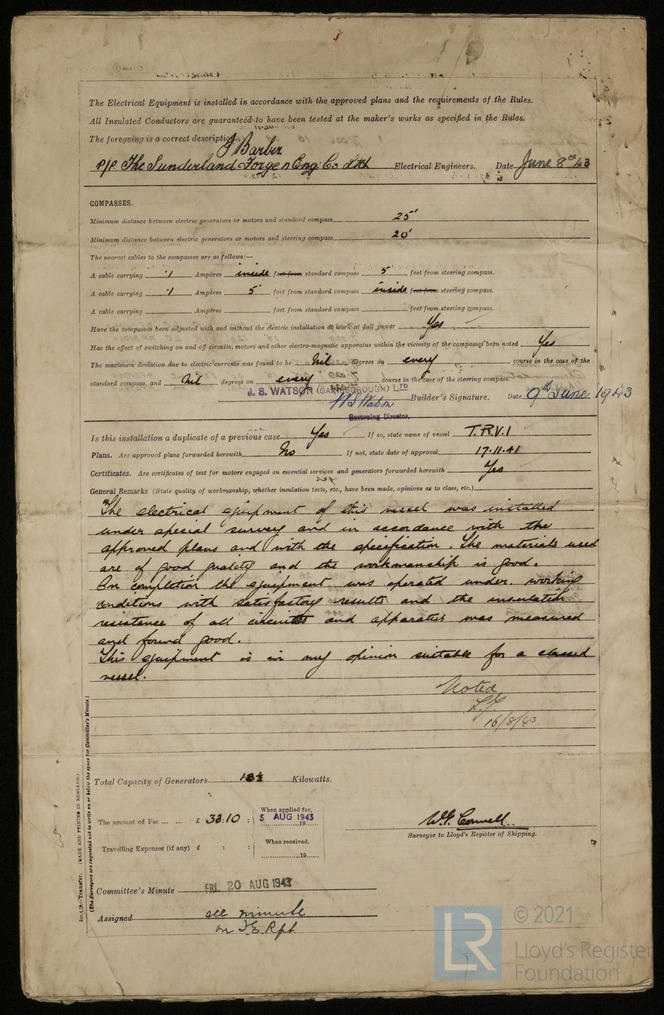 The Electrical Equipment is installed in accordance with the approved plans and the requirements of the Rules.
All Insulated Conductors are guaranteed to have been tested at the maker's works as specified in the Rules.
The foregoing is a correct description
J Barber
p/p The Sunderland Forge & Eng Co Ltd Electrical Engineers. Date June 8th 43
COMPASSES.
Minimum distance between electric generators or motors and standard compass 25'
Minimum distance between electric generators or motors and steering compass 20'
The nearest cables to the compasses are as follows:—
A cable carrying .1 Ampères inside feet from standard compass 5 feet from steering compass.
A cable carrying .1 Ampères 5 feet from standard compass inside feet from steering compass.
A cable carrying Ampères feet from standard compass feet from steering compass.
Have the compasses been adjusted with and without the electric installation at work at full power Yes
Has the effect of switching on and off circuits, motors and other electro-magnetic apparatus within the vicinity of the compasses been noted Yes
The maximum deviation due to electric currents was found to be Nil degrees on every course in the case of the
standard compass, and Nil degrees on every course in the case of the steering compass.
J. S. WATSON (GAINSBOROUGH) LTD
J S Watson Builder's Signature. Date 9th June 1943
Governing Director.
Is this installation a duplicate of a previous case Yes If so, state name of vessel T.R.V.1
Plans. Are approved plans forwarded herewith No If not, state date of approval 17.11.41
Certificates. Are certificates of test for motors engaged on essential services and generators forwarded herewith Yes
General Remarks (State quality of workmanship, whether insulation tests, etc., have been made, opinions as to class, etc.)
The electrical equipment of this vessel was installed
under special survey and in accordance with the
approved plans and with the specification. The materials used
are of good quality and the workmanship is good.
On completion the equipment was operated under working
conditions with satisfactory results and the insulation
resistance of all circuits and apparatus was measured
and found good.
This equipment is in my opinion suitable for a classed
vessel.
Noted
16/8/43
Total Capacity of Generators Kilowatts.
The amount of Fee £ 33.10 : When applied for, 5 AUG 1943 19
W.F. Connell
Surveyor to Lloyd's Register of Shipping.
Travelling Expenses (if any) £ : : When received, 19
Committee's Minute FRI. 20 AUG 1943
Assigned see minute
on F.E. Rpt.
(MADE AND PRINTED IN ENGLAND.)
(The Surveyors are requested not to write on or below the space for Committee's Minute.)
LR © 2021
Lloyd's Register
Foundation